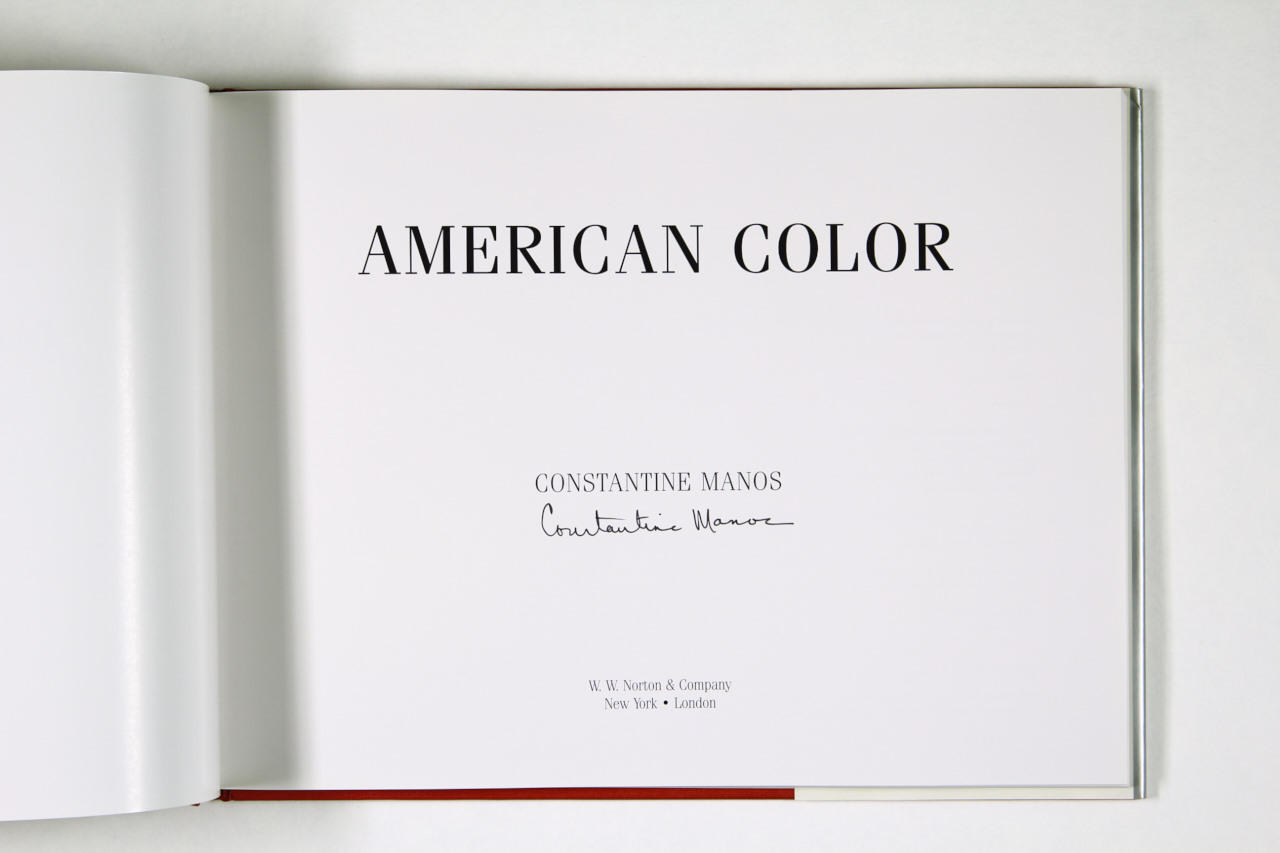 AMERICAN COLOR
CONSTANTINE MANOS
Constantine Manos
W. W. Norton & Company
New York • London